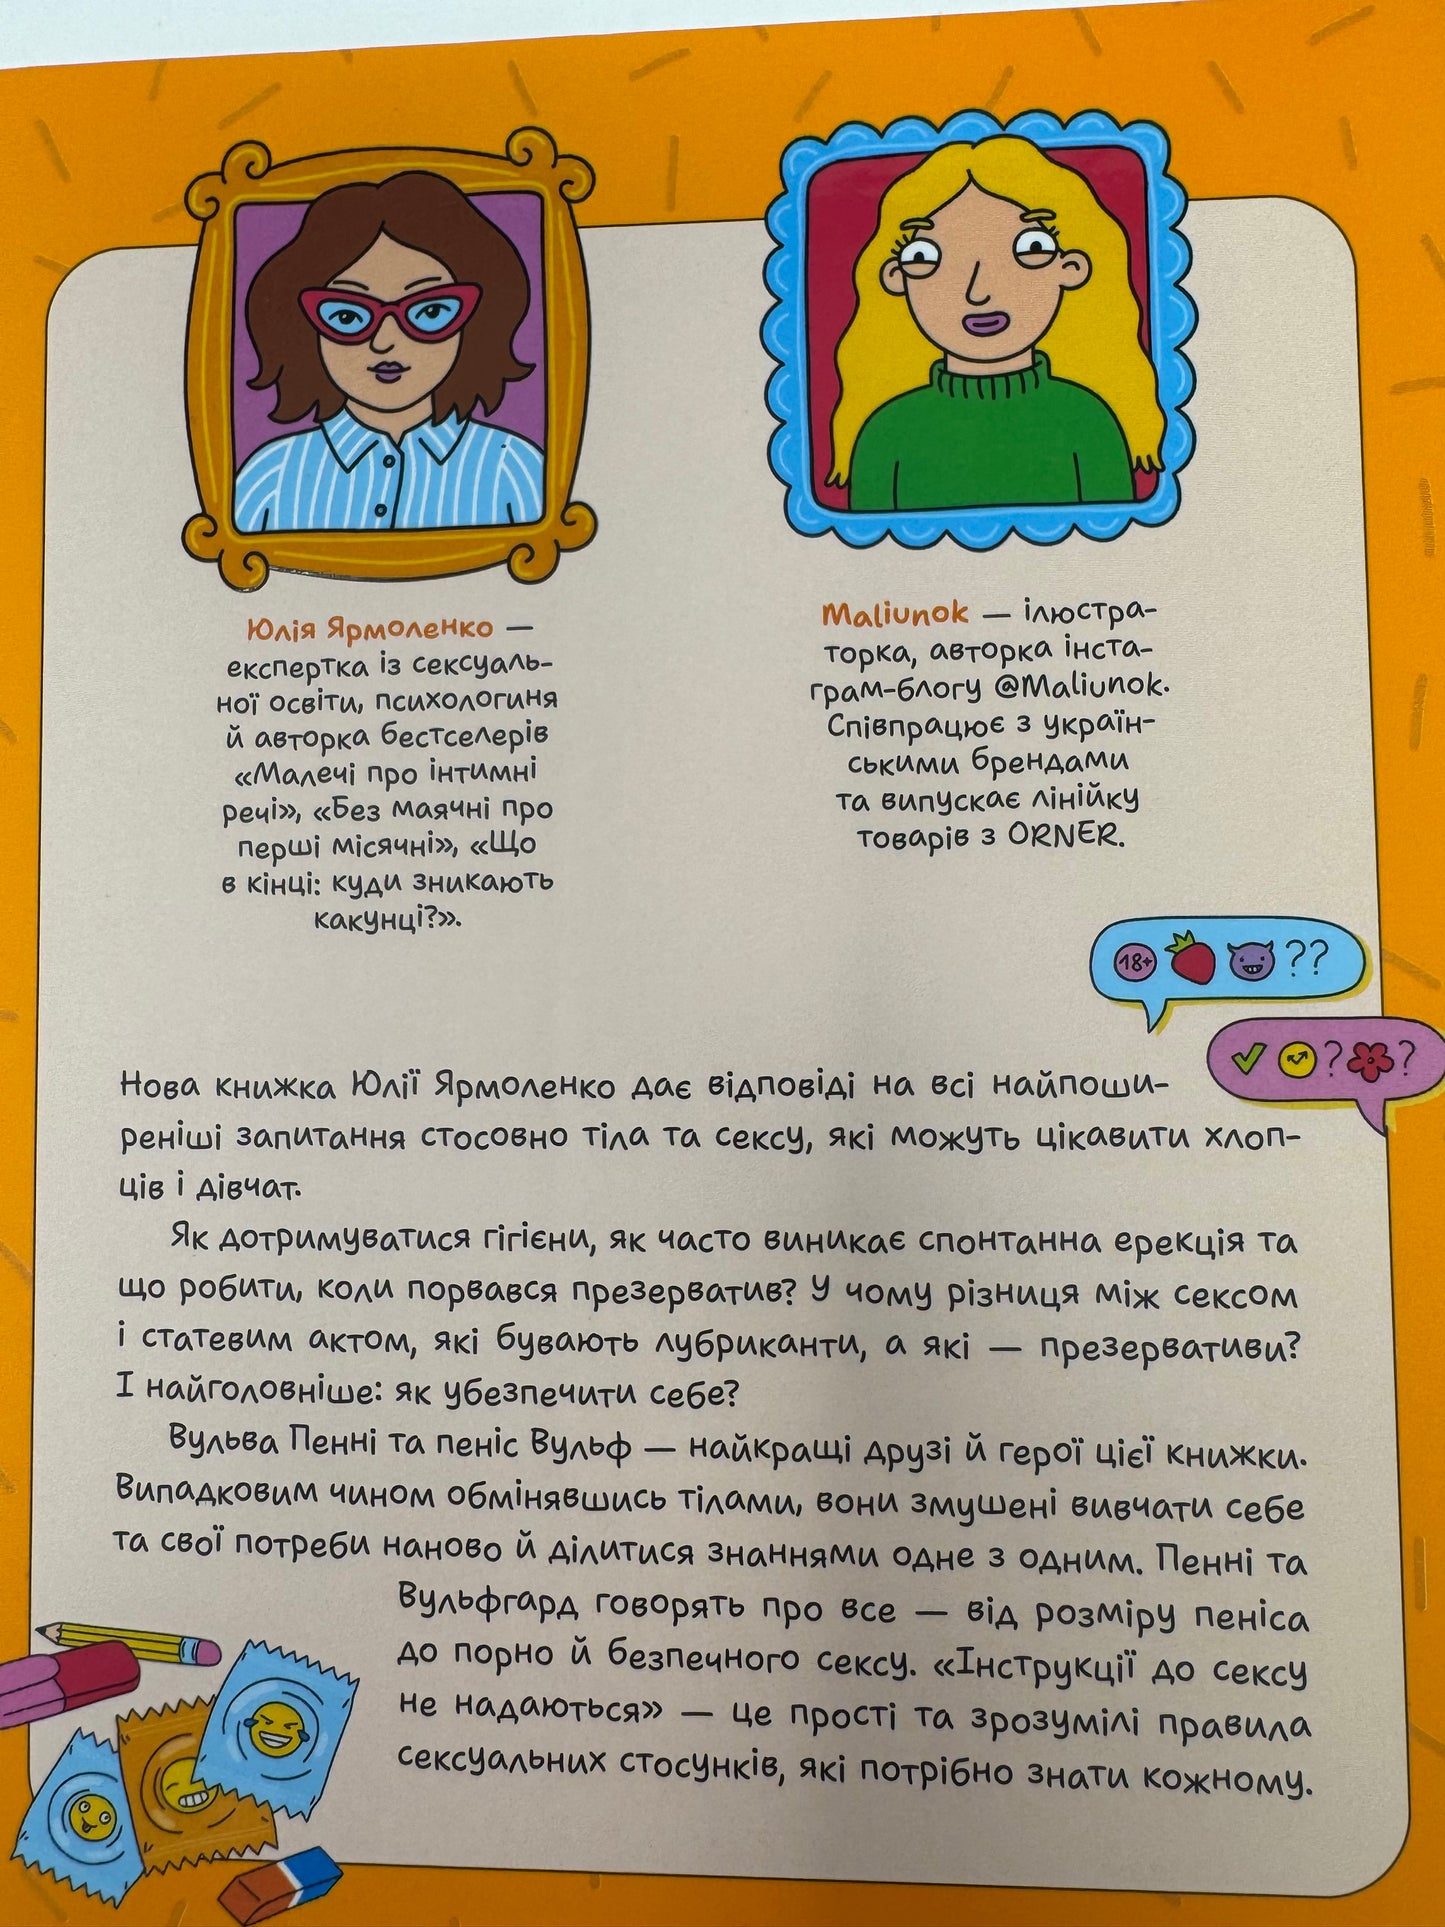 Юлія Ярмоленко —
експертка із сексуаль-
ної освіти, психологиня
й авторка бестселерів
«Малечі про інтимні
речі», «Без маячні про
перші місячні», «Що
в кінці: куди зникають
какунці?».
Maliunok — ілюстра-
торка, авторка інста-
грам-блогу @Maliunok.
Співпрацює з україн-
ськими брендами
та випускає лінійку
товарів з ORNER.
18+ ??
? ?
Нова книжка Юлії Ярмоленко дає відповіді на всі найпоши-
реніші запитання стосовно тіла та сексу, які можуть цікавити хлоп-
ців і дівчат.
Як дотримуватися гігієни, як часто виникає спонтанна ерекція та
що робити, коли порвався презерватив? У чому різниця між сексом
і статевим актом, які бувають лубриканти, а які — презервативи?
І найголовніше: як убезпечити себе?
Вульва Пенні та пеніс Вульф — найкращі друзі й герої цієї книжки.
Випадковим чином обмінявшись тілами, вони змушені вивчати себе
та свої потреби наново й ділитися знаннями одне з одним. Пенні та
Вульфгард говорять про все — від розміру пеніса
до порно й безпечного сексу. «Інструкції до сексу
не надаються» — це прості та зрозумілі правила
сексуальних стосунків, які потрібно знати кожному.